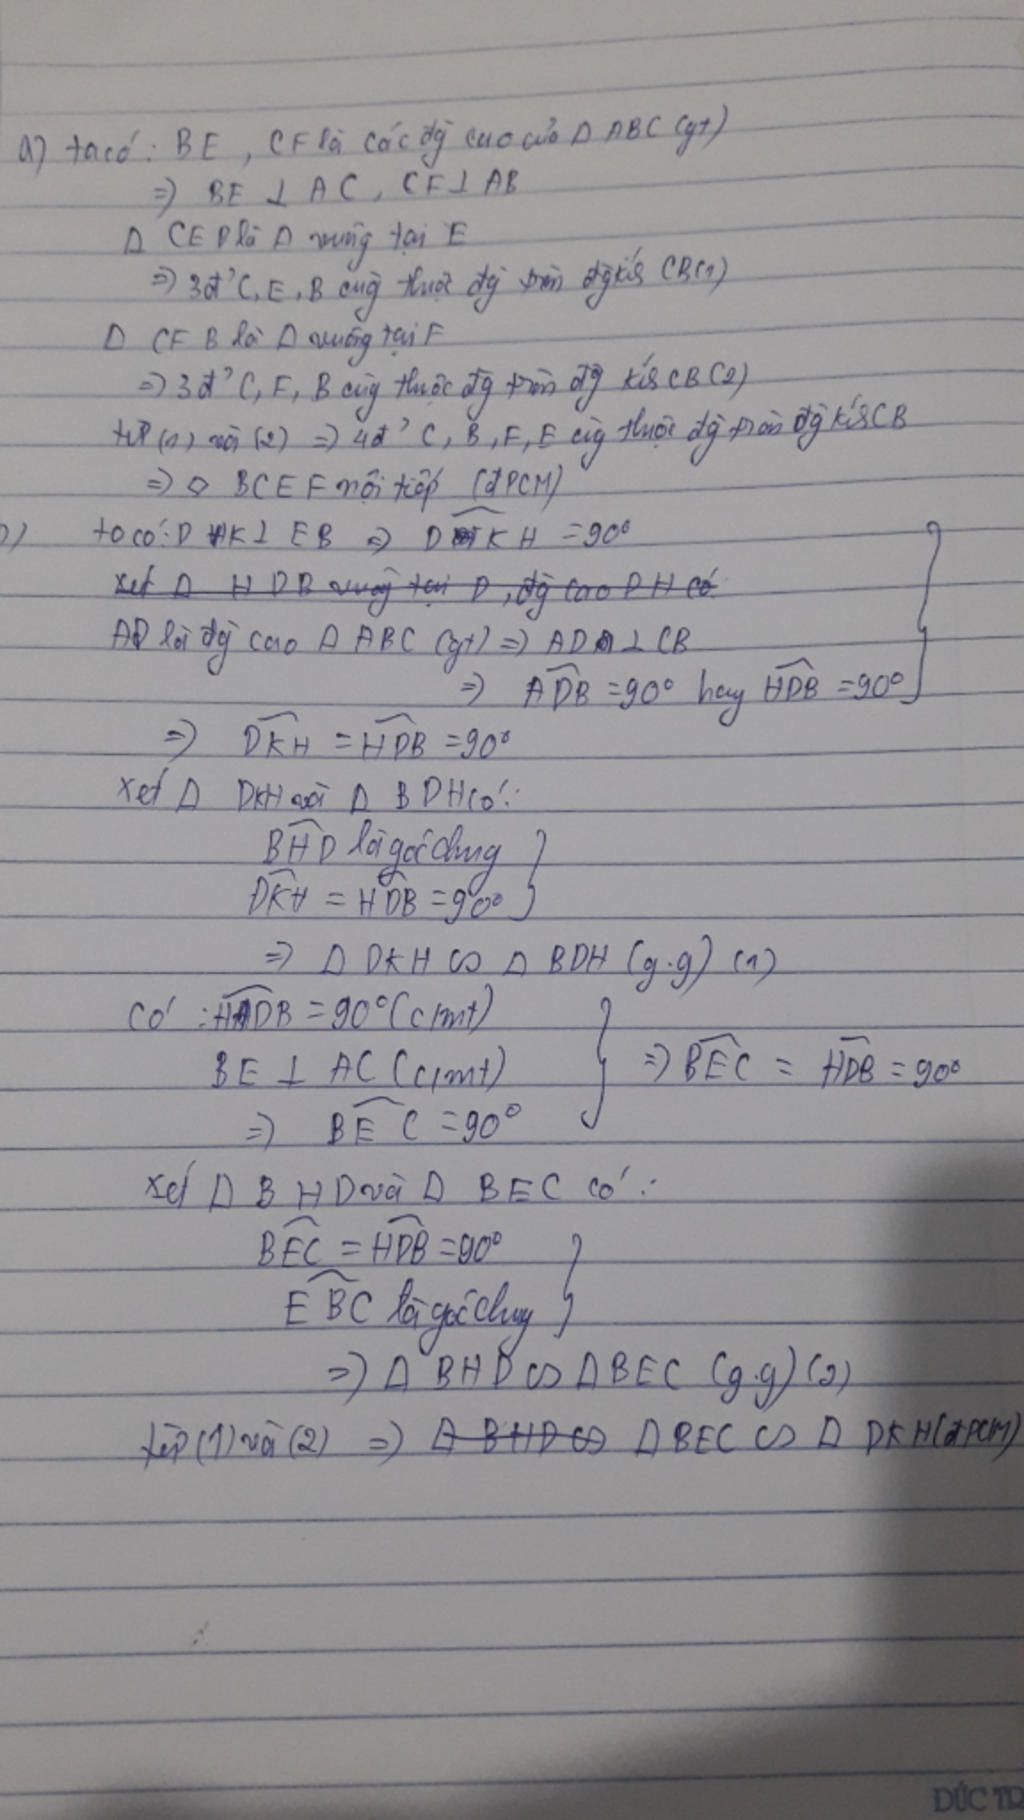 a) ta có: BE, CF là các đg cao của Δ ABC (gt)
=> BE ⊥ AC, CF ⊥ AB
Δ CEB là Δ vuông tại E
=> 3 đ' C, E, B cùg thuộc đg tròn đg kís CB (1)
Δ CFB là Δ vuông tại F
=> 3 đ' C, F, B cùg thuộc đg tròn đg kís CB (2)
từ (1) và (2) => 4 đ' C, B, F, E cùg thuộc đg tròn đg kís CB
=> ◇ BCEF nội tiếp (đPCM)
b) ta có: DK ⊥ EB => DKH = 90°
xét Δ HDB vuông tại D, đg cao DH có
AD là đg cao Δ ABC (gt) => AD ⊥ CB
=> ADB = 90° hay HDB = 90°
=> DKH = HDB = 90°
xét Δ DKH và Δ BDH có:
BHD là góc chung
DKH = HDB = 90°
=> Δ DKH ∽ Δ BDH (g.g) (1)
có: HDB = 90° (cmt)
BE ⊥ AC (cmt) => BEC = HDB = 90°
=> BEC = 90°
xét Δ BHD và Δ BEC có:
BEC = HDB = 90°
EBC là góc chung
=> Δ BHD ∽ Δ BEC (g.g) (2)
từ (1) và (2) => Δ BHD ∽ Δ BEC ∽ Δ DKH (đPCM)
ĐỨC